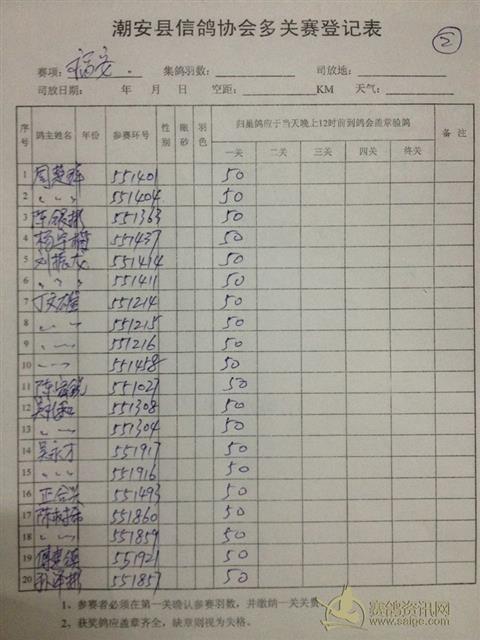 潮安县信鸽协会多关赛登记表
②
赛项： 集鸽羽数： 司放地：
司放日期： 年 月 日 空距： KM 天气：
序号 鸽主姓名 年份 参赛环号 性别 眼砂 羽色 归巢鸽应于当天晚上12时前到鸽会盖章验鸽 备注
一关 二关 三关 四关 终关
1 周楚 551401 50
2 〃 〃 551404 50
3 陈银彬 551363 50
4 杨 551437 50
5 刘振龙 551414 50
6 〃 〃 551411 50
7 丁文雄 551214 50
8 〃 〃 551215 50
9 〃 〃 551216 50
10 〃 〃 551458 50
11 陈 551027 50
12 551308 50
13 〃 〃 551304 50
14 吴永才 551917 50
15 〃 〃 551916 50
16 正合兴 551493 50
17 陈 551860 50
18 〃 〃 551859 50
19 551921 50
20 孙泽彬 551857 50
1、参赛者必须在第一关确认参赛羽数，并缴纳一关关费
2、获奖鸽应盖章齐全，缺章则视为失格。
赛鸽资讯网
www.saige.com